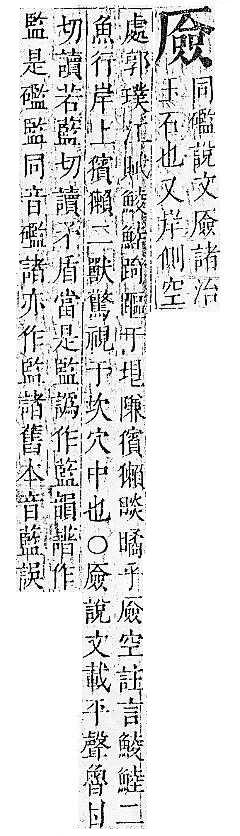 厱
同礛說文厱諸治
玉石也又岸側空
處郭璞江賦鯪鯥踦䠧于垠隒獱獺睒瞲乎厱空註言鯪鯥二
魚行岸上獱獺二獸驚視于坎穴中也○厱說文載平聲魯甘
切讀若藍切讀矛盾當是監譌作藍韻諧作
監是礛監同音礛諸亦作監諸舊本音藍誤